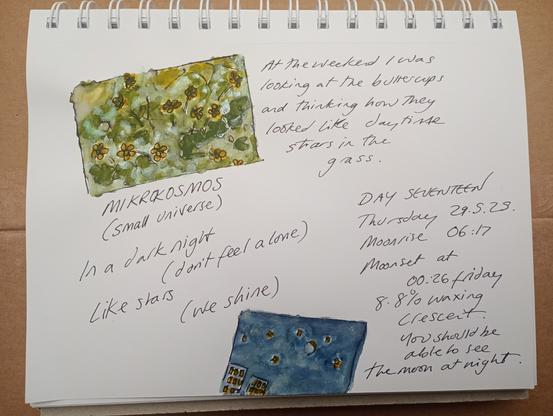 At the weekend I was
looking at the buttercups
and thinking how they
looked like daytime
stars in the
grass.
MIKROKOSMOS
(small universe)
In a dark night
(don't feel alone)
Like stars
(we shine)
DAY SEVENTEEN
Thursday 29.5.25.
Moonrise 06:17
Moonset at
00:26 friday
8.8% waxing
crescent.
You should be
able to see
the moon at night.